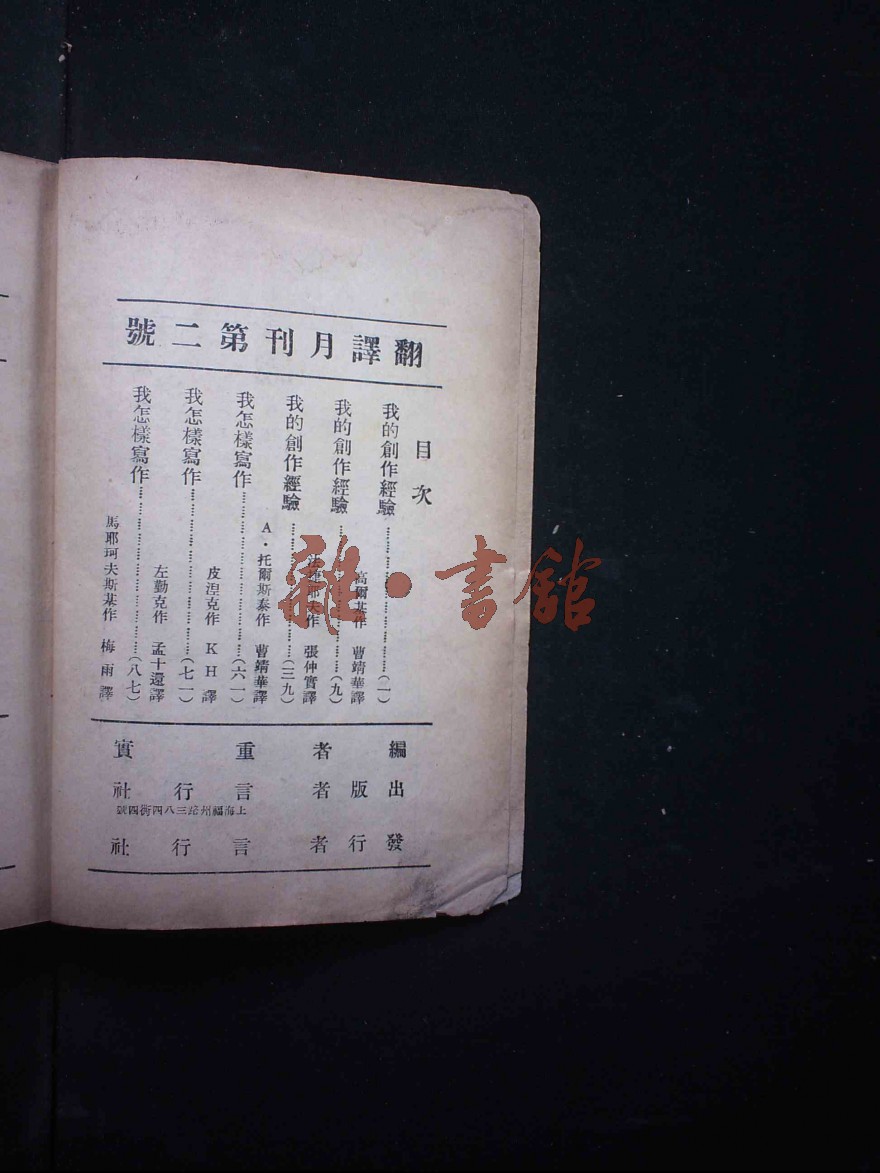 翻譯月刊第二號
目次
我的創作經驗……(一)
高爾基作 曹靖華譯
我的創作經驗……(九)
法捷耶夫作 張仲實譯
我的創作經驗……(三九)
A·托爾斯泰作 曹靖華譯
我怎樣寫作……(六一)
皮涅克作 KH譯
我怎樣寫作……(七一)
左勤克作 孟十還譯
我怎樣寫作……(八七)
馬耶珂夫斯基作 梅雨譯
編者 重實
出版者 言行社
上海福州路三八四街四號
發行者 言行社
雜·書館